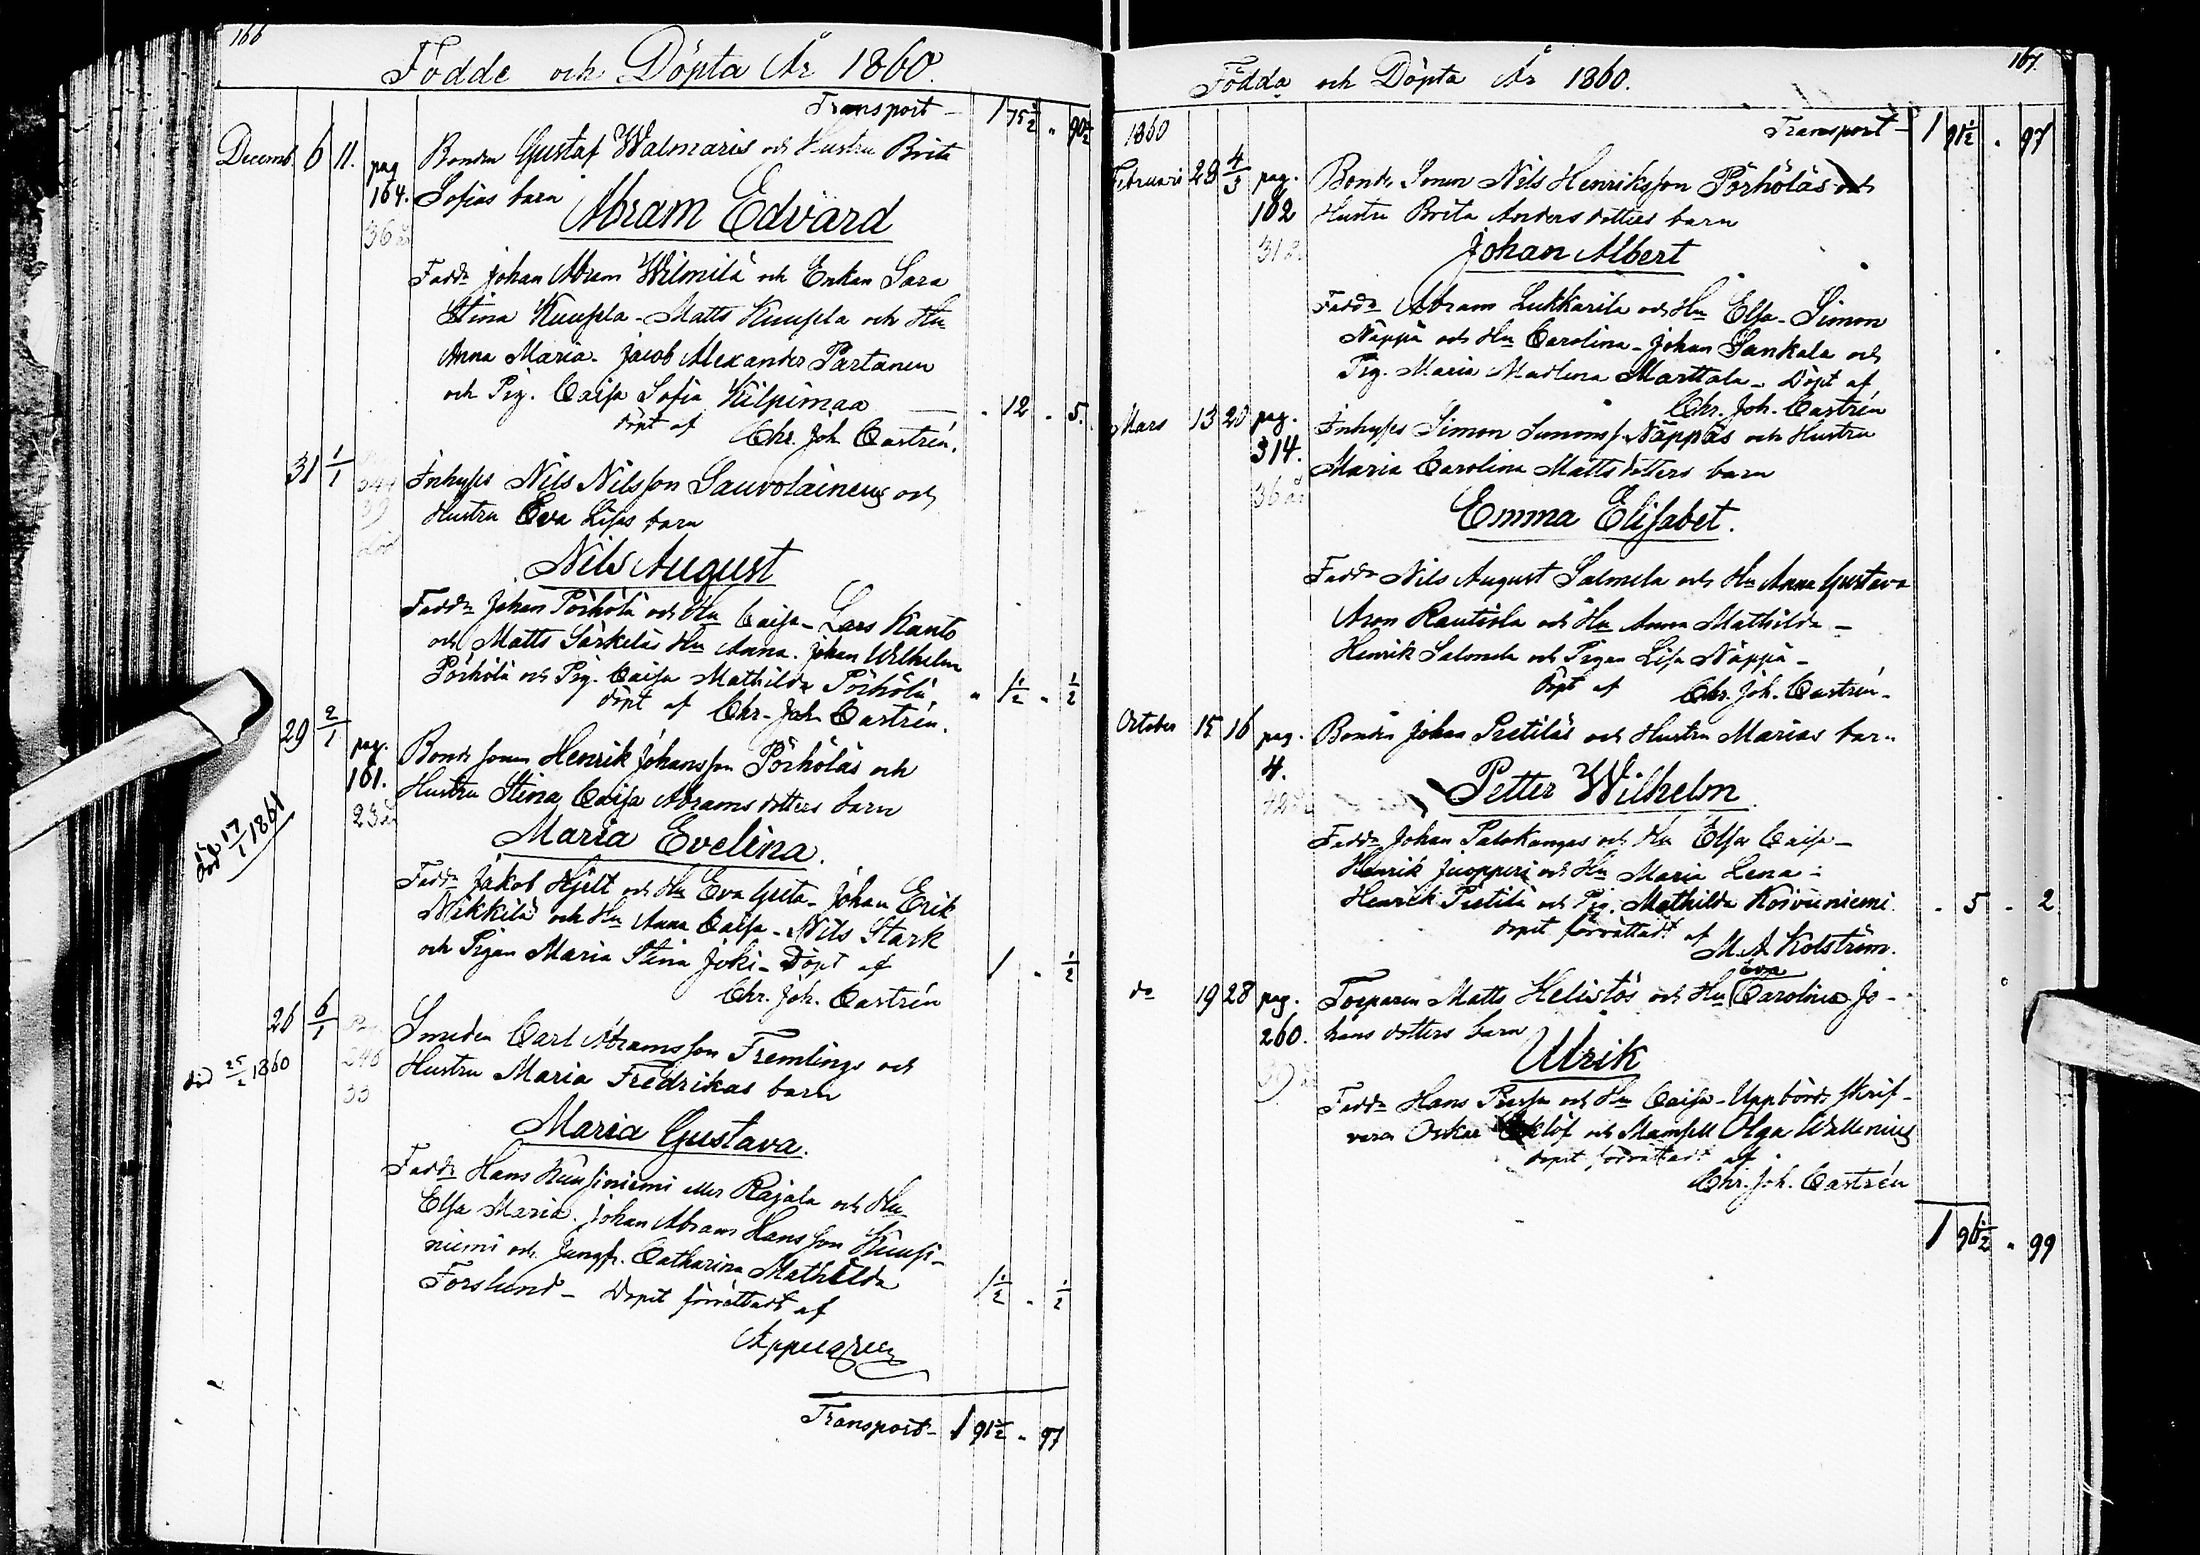 166
Födde och Döpta År 1860.
Transport - 1 75½ " 90½
Decemb. 6 11. pag Bonden Gustaf Walmaris och Hustru Brita
164. Sofias barn
36 Abram Edvard
Faddr Johan Abram Wilmilä och Enkan Sara
Stina Kuupla - Matts Kuupla och Hu
Anna Maria - Jacob Alexander Partanen
och Pig. Caisa Sofia Kilpimaa - " 12 " 5.
döpt af Chr. Joh. Castrén.
31 1/1 Inhyses Nils Nilsson Sauvolainens och
Hustru Eva Lisas barn
Nils August
Faddr Johan Pörhölä och Hu Caisa - Lars Kanto
och Matts Särkeläs Hu Anna. Johan Wilhelm
Pörhölä och Pig. Caisa Mathilda Pörhölä " 1½ " ½
döpt af Chr. Joh. Castrén.
29 2/1 pag. Bonde sonen Henrik Johansson Pörhöläs och
161. Hustru Stina Caisa Abrams dotters barn
23 år
död 17/1 1861
Maria Evelina.
Faddr Jakob Hjelt och Hu Eva Greta - Johan Erik
Mikkilä och Hu Anna Caisa - Nils Stark
och Pigan Maria Stina Joki - Döpt af 1 " ½
Chr. Joh. Castrén
26 6/1 Smeden Carl Abramsson Fremlings och
246 Hustru Maria Fredrikas barn
33
död 25/2 1860
Maria Gustava.
Faddr Hans Kuusiniemi eller Rajala och Hu
Elsa Maria. Johan Abram Hansson Kuusi-
niemi och Jungfr. Catharina Mathilda
Forslund - Dopet förrättadt af 1½ " ½
Appelgren
Transport - 1 91½ " 97
167.
Födda och Döpta År 1860.
1860 Transport - 1 91½ " 97
Februarii 29 4/3 pag. Bonde Sonen Nils Henriksson Pörhöläs och
102 Hustru Brita Anders dotters barn
31 Johan Albert
Faddr Abram Lukkarila och Hu Elsa - Simon
Näppä och Hu Carolina - Johan Sankala och
Pig. Maria Madlena Marttala - Döpt af
Chr. Joh. Castrén
Mars 13 20 pag. Inhyses Simon Simons s. Näppäs och Hustru
314. Maria Carolina Matts dotters barn
36 år
Emma Elisabet.
Faddr Nils August Salmela och Hu Anna Gustava
Aron Rautiola och Hu Anna Mathilda -
Henrik Salmela och Pigan Lisa Näppä -
döpt af Chr. Joh. Castrén -
October 15 16 pag. Bonden Johan Pietiläs och Hustru Marias barn
4.
Petter Wilhelm
Faddr Johan Palokangas och Hu Elsa Caisa -
Henrik Juopperi och Hu Maria Lena -
Henrik Pietilä och Pig. Mathilda Koivuniemi. " 5 " 2
dopet förrättadt af
M. A. Kolström.
do 19 28 pag. Torparen Matts Helistös och Hu Eva Carolina Jo-
260. hans dotters barn
Ulrik
Faddr Hans och Hu Caisa - Uppbörds skrif-
varen Oskar Eklöf och Mamsell Olga Wallenius
dopet förrättadt af
Chr. Joh. Castrén
1 96½ " 99